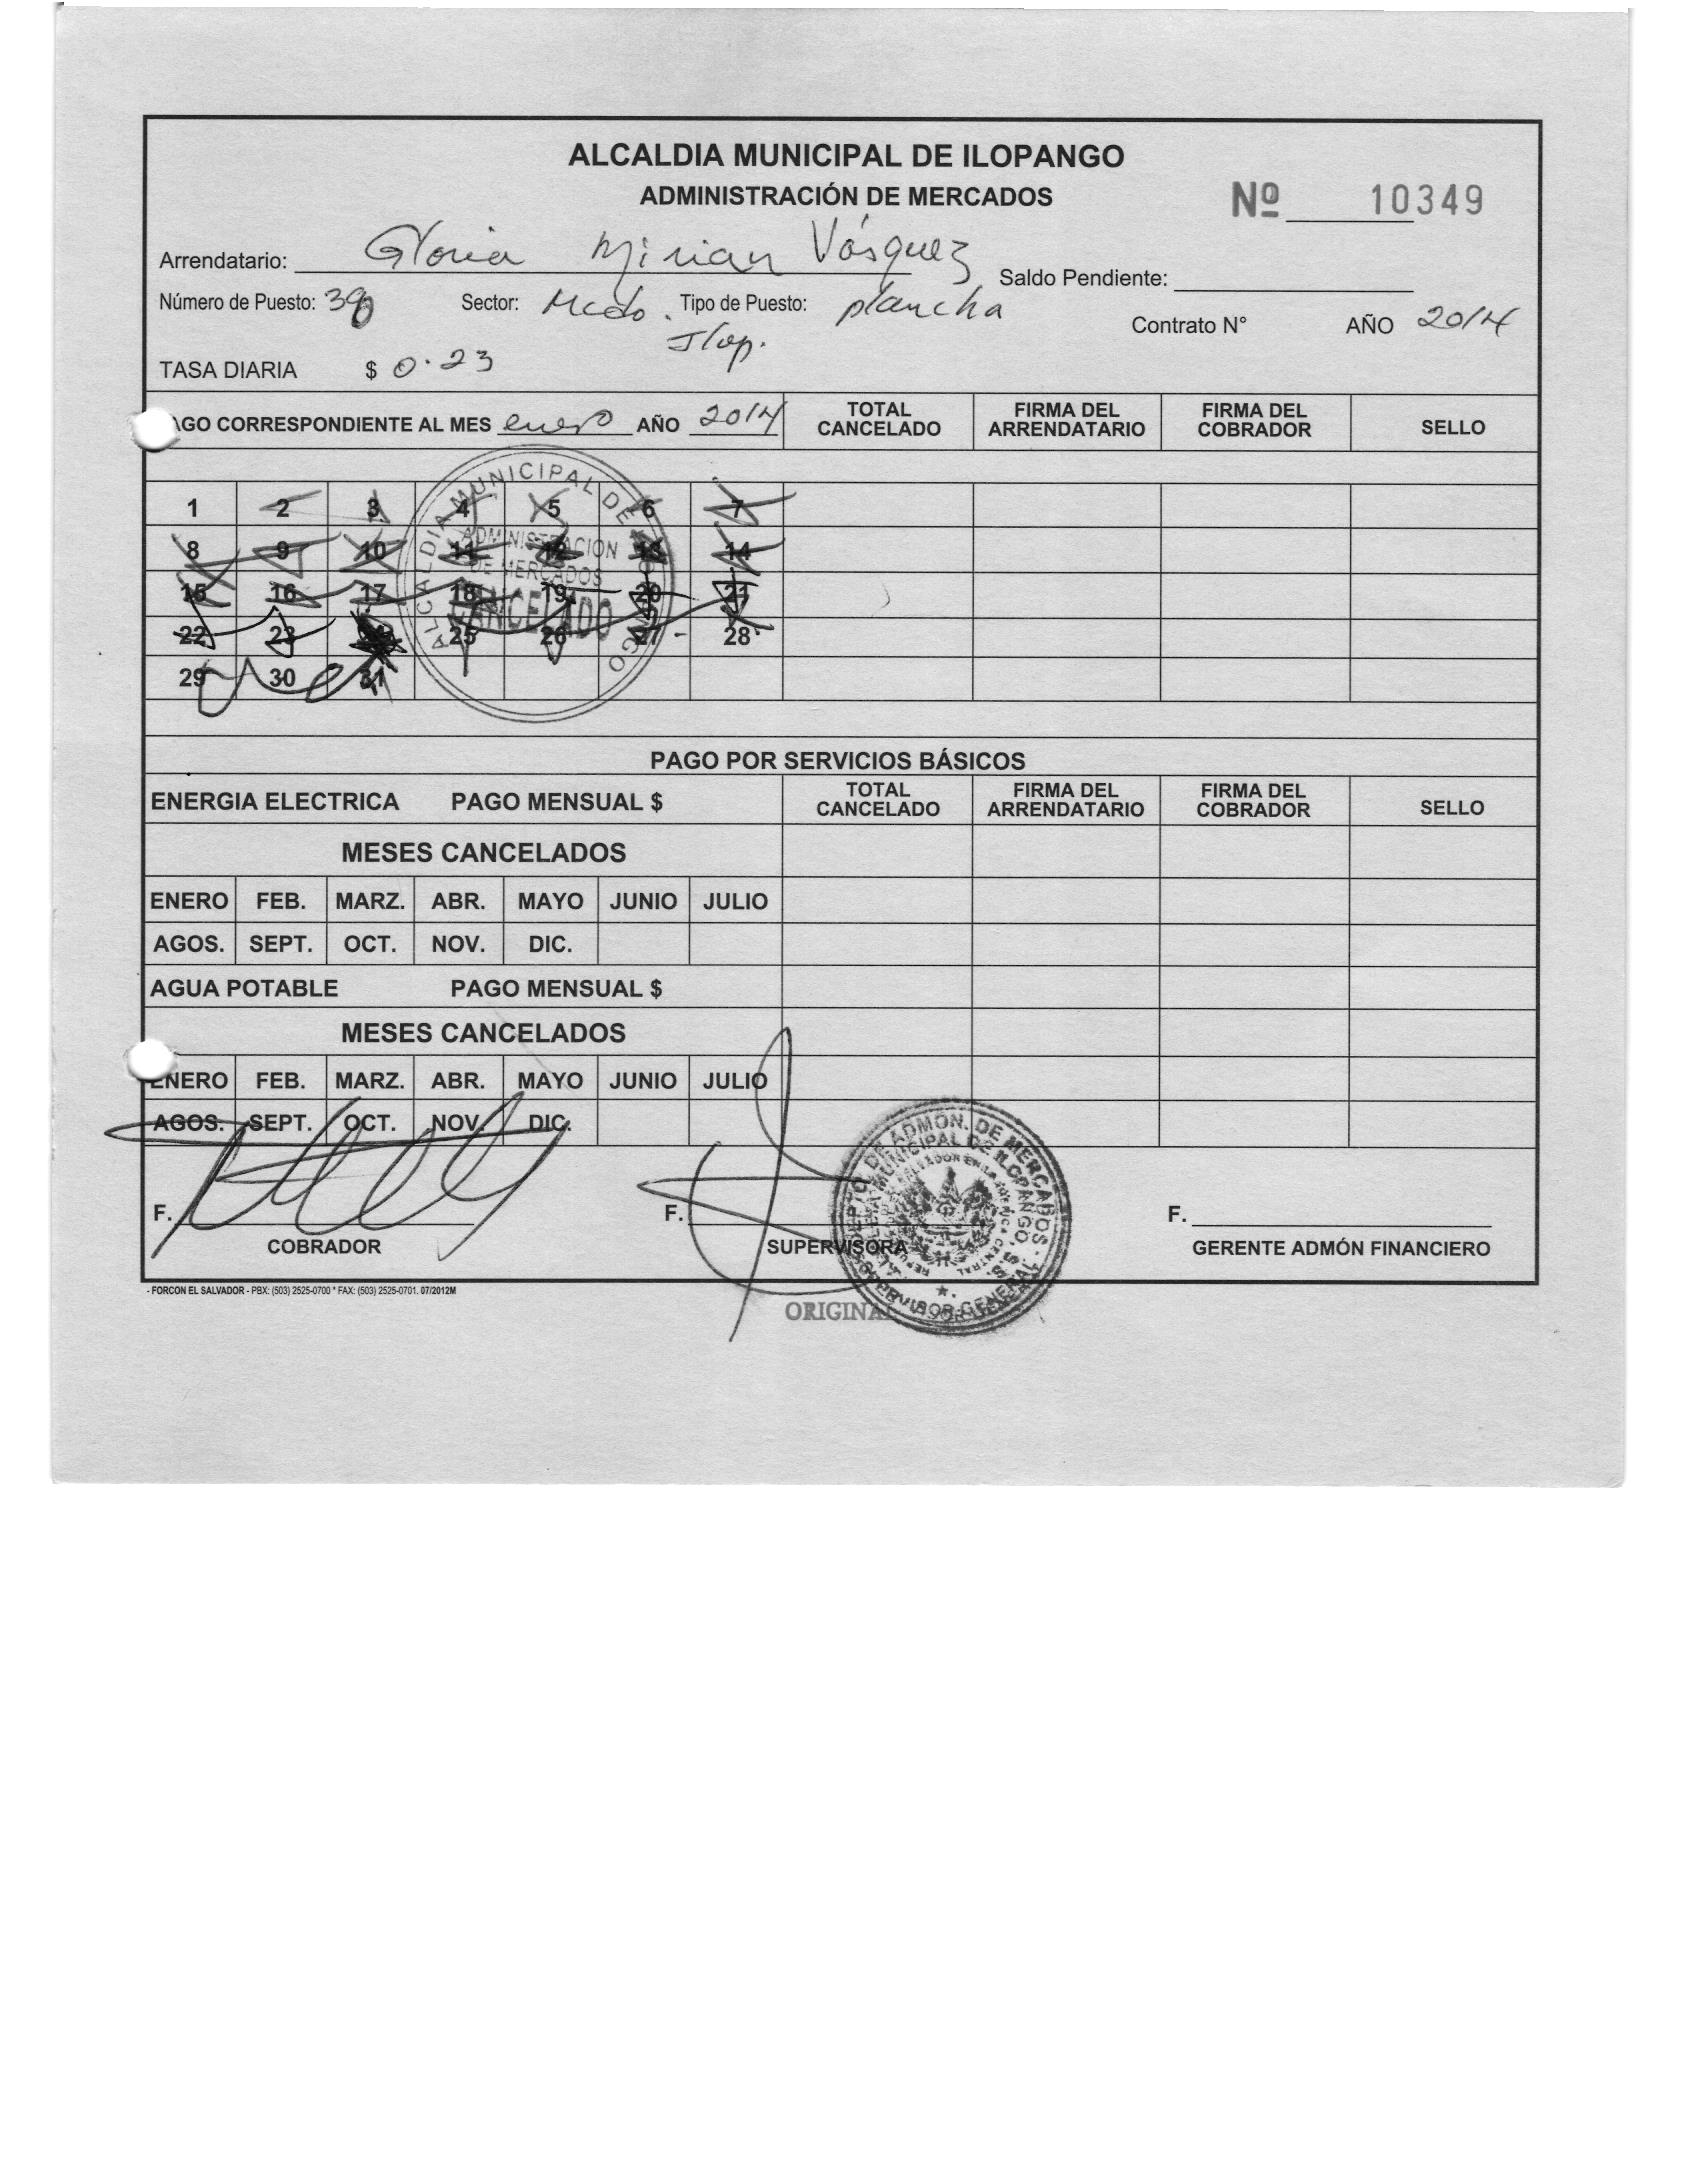 ALCALDIA MUNICIPAL DE ILOPANGO
ADMINISTRACIÓN DE MERCADOS
Nº 10349
Arrendatario: Gloria Mirian Vásquez
Saldo Pendiente:
Número de Puesto: Sector: Mcdo. Ilop. Tipo de Puesto: plancha
Contrato N° AÑO 2014
TASA DIARIA $ 0.23
AGO CORRESPONDIENTE AL MES enero AÑO 2014 TOTAL CANCELADO FIRMA DEL ARRENDATARIO FIRMA DEL COBRADOR SELLO
1 2 3 4 5 6 7
8 9 10 11 12 13 14
15 16 17 18 19 20 21
22 23 24 25 26 27 28
29 30 31
ALCALDIA MUNICIPAL DE ILOPANGO
ADMINISTRACION
DE MERCADOS
CANCELADO
PAGO POR SERVICIOS BÁSICOS
ENERGIA ELECTRICA PAGO MENSUAL $ TOTAL CANCELADO FIRMA DEL ARRENDATARIO FIRMA DEL COBRADOR SELLO
MESES CANCELADOS
ENERO FEB. MARZ. ABR. MAYO JUNIO JULIO
AGOS. SEPT. OCT. NOV. DIC.
AGUA POTABLE PAGO MENSUAL $
MESES CANCELADOS
ENERO FEB. MARZ. ABR. MAYO JUNIO JULIO
AGOS. SEPT. OCT. NOV. DIC.
F. F. F.
COBRADOR SUPERVISORA GERENTE ADMÓN FINANCIERO
DEPTO. DE ADMON. DE MERCADOS
ALCALDIA MUNICIPAL DE ILOPANGO, S.S.
SUPERVISOR GENERAL
- FORCON EL SALVADOR - PBX: (503) 2525-0700 * FAX: (503) 2525-0701. 07/2012M
ORIGINAL